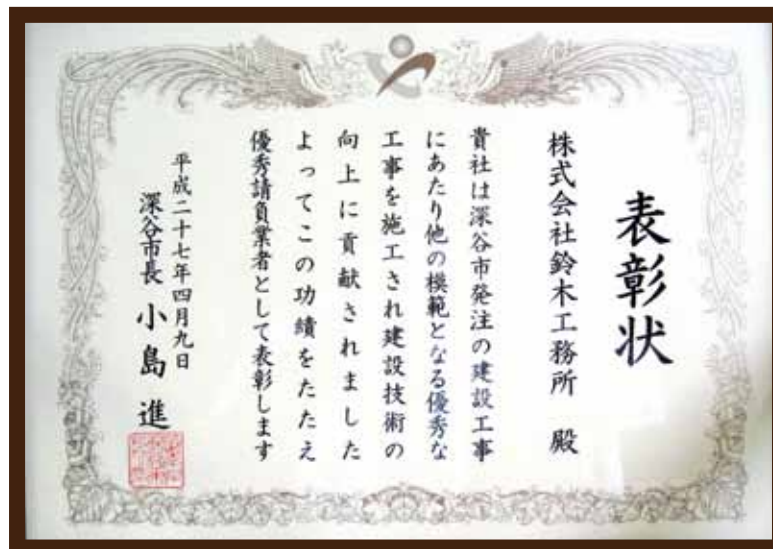 表彰状
株式会社鈴木工務所 殿
貴社は深谷市発注の建設工事
にあたり他の模範となる優秀な
工事を施工され建設技術の
向上に貢献されました
よってこの功績をたたえ
優秀請負業者として表彰します
平成二十七年四月九日
深谷市長 小島 進